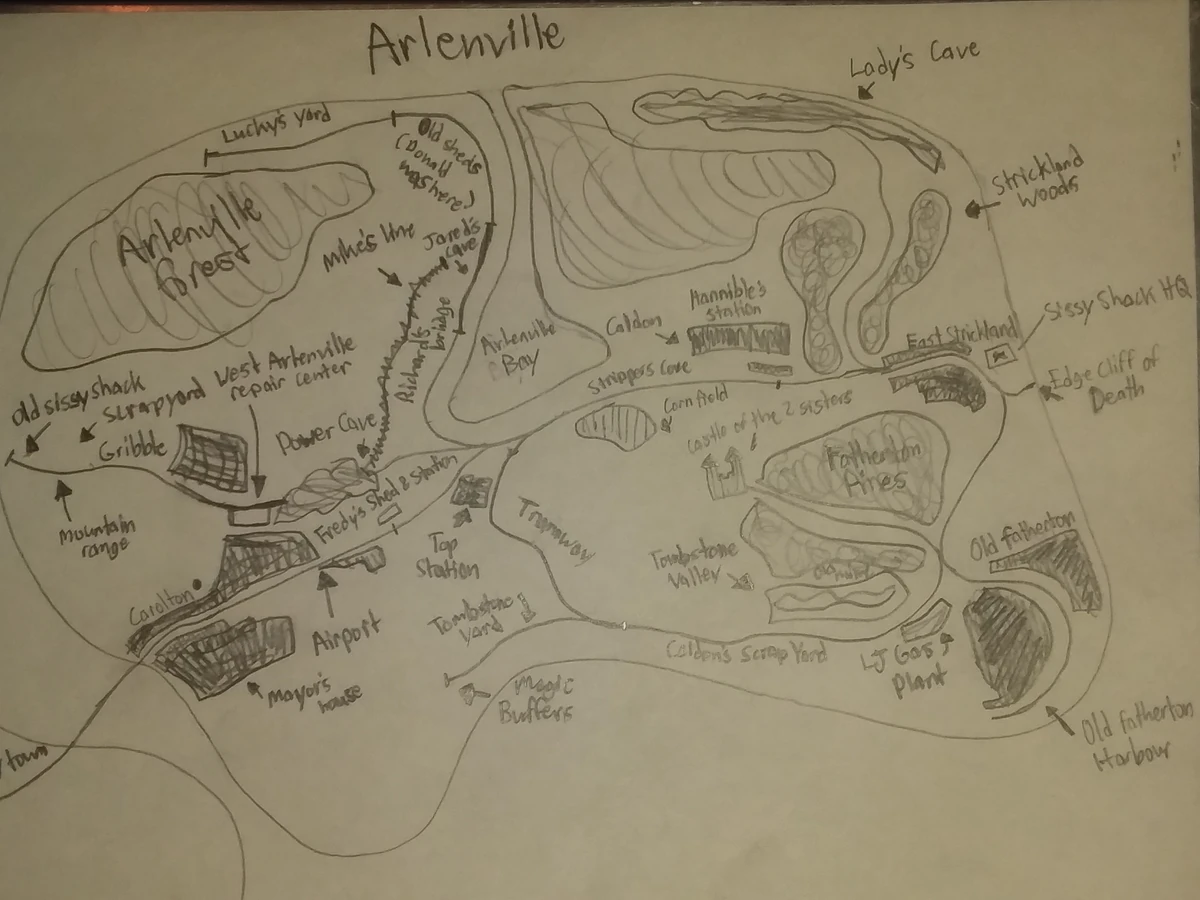 Arlenville
Lady's Cave
Luchy's yard
Old sheds
(Donald
was here)
Strickland
Woods
Arlenville
forest
Mike's line
Jared's
cave
Richard's
bridge
Arlenville
Bay
Caldon
Hannible's
station
Sissy Shack HQ
East Strickland
Edge Cliff of
Death
Strippers Cove
Corn field
castle of the 2 sisters
old sissy shack
scrapyard
West Arlenville
repair center
Gribble
Power Cave
Mountain
range
Fredy's Shed & Station
Top
Station
Tramway
Fatherton
Pires
Tombstone
Valley
Old
Old fatherton
Carolton
Airport
Mayor's
house
Tombstone
Yard
Magic
Buffers
Caldon's Scrap Yard
LJ Gas
Plant
Old fatherton
Harbour
town